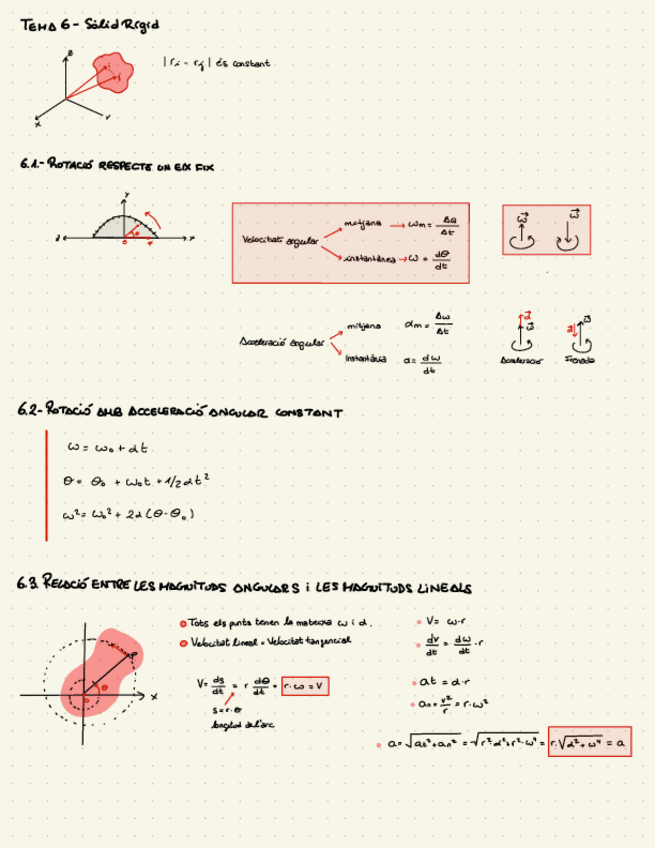 TEMA 6 - Sòlid Rígid
z
i
j
x
y
| ri - rj | és constant
6.1.- ROTACIÓ RESPECTE UN EIX FIX
y
z
θ
0
x
Velocitat angular
mitjana → ωm = Δθ/Δt
instantánea → ω = dθ/dt
ω ω
Acceleració angular
mitjana αm = Δω/Δt
Instantània α = dω/dt
α ω
α ω
Acceleració
Frenada
6.2- ROTACIÓ AMB ACCELERACIÓ ANGULAR CONSTANT
ω = ω0 + αt
θ = θ0 + ω0t + 1/2 αt²
ω² = ω0² + 2α (θ - θ0)
6.3. RELACIÓ ENTRE LES MAGNITUDS ANGULARS i LES MAGNITUDS LINEALS
P
θ
x
Tots els punts tenen la mateixa ω i α.
Velocitat lineal = Velocitat tangencial
V = ds/dt = r dθ/dt = r·ω = V
s = r·θ
longitud de l'arc
V = ω·r
dv/dt = dω/dt ·r
at = α·r
an = v²/r = r·ω²
a = √at² + an² = √r²·α² + r²·ω⁴ = r·√α² + ω⁴ = a